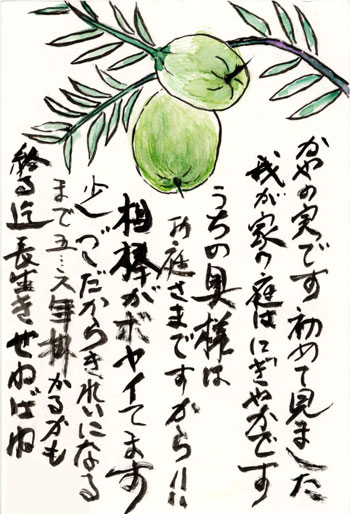 かやの実です 初めて見ました
我が家の庭はにぎやかです
うちの奥様は
お庭さまですから!!
相棒がボヤイてます
少しづゝだからきれいになる
まで五…六年掛かるかも
終る迄長生きせねばね